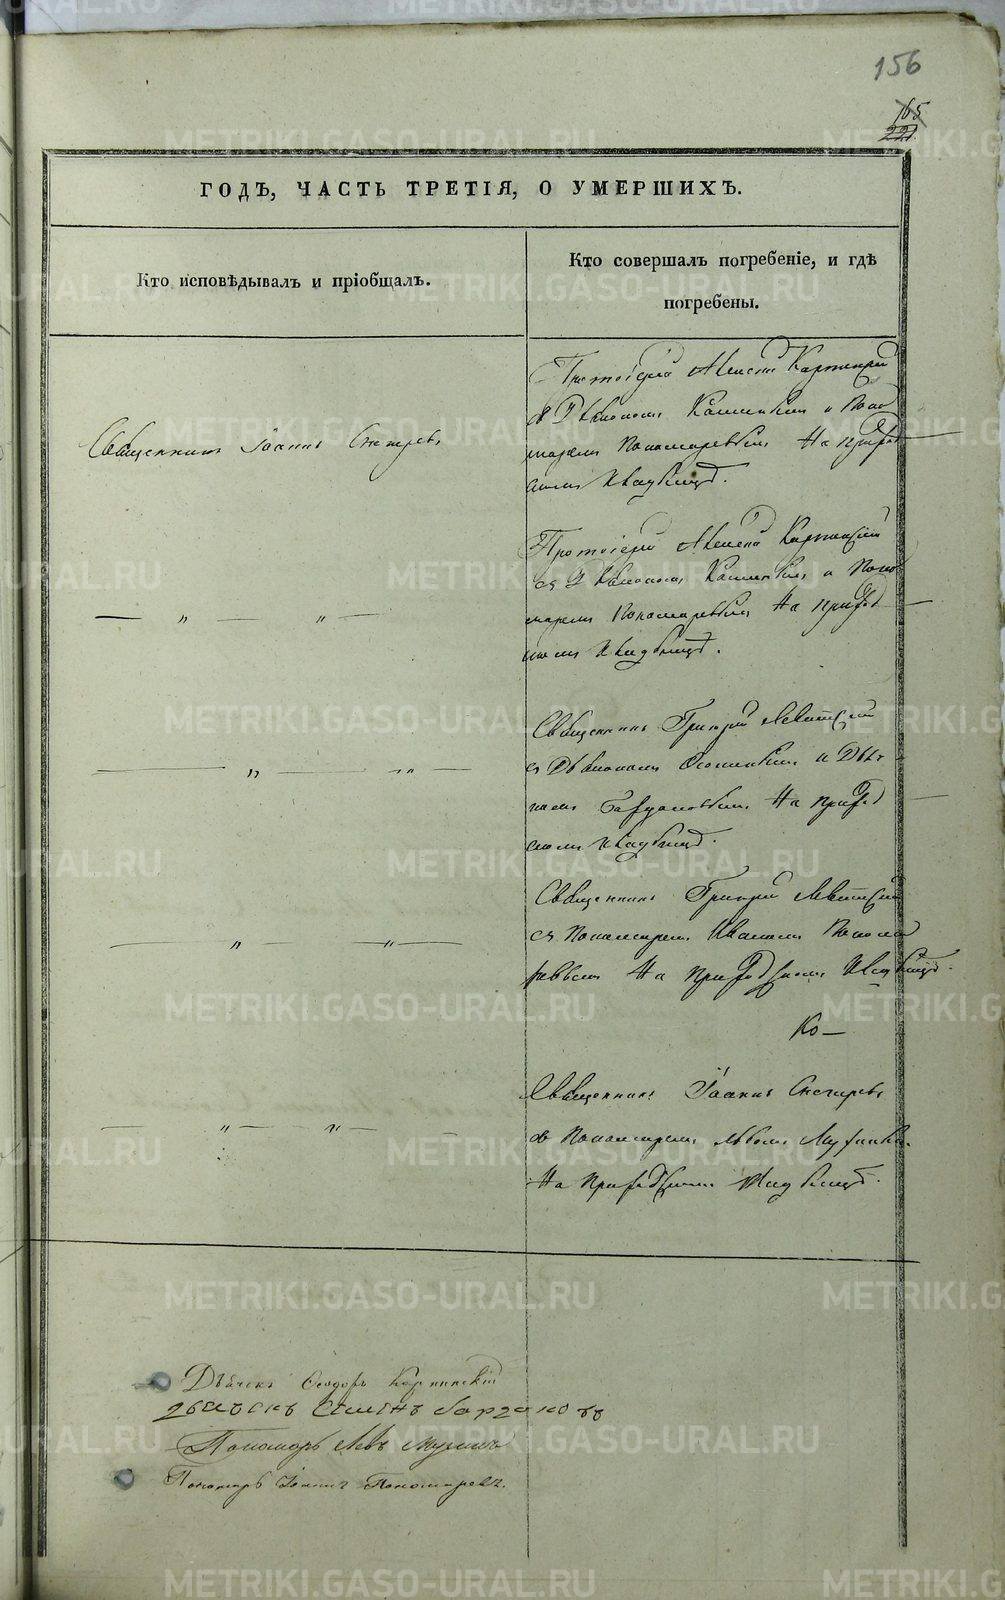 156
165
221
ГОДЪ, ЧАСТЬ ТРЕТІЯ, О УМЕРШИХЪ.
Кто исповѣдывалъ и пріобщалъ.
Кто совершалъ погребеніе, и гдѣ
погребены.
Священникъ Іоаннъ Снегиревъ
Протоіерей Алексей Карпинскій
съ Діакономъ и Поно
маремъ Пономаревымъ На приход
скомъ кладбищѣ.
— „ — „ —
Протоіерей Алексей Карпинскій
съ Діакономъ и Поно
маремъ Пономаревымъ На приход
скомъ кладбищѣ.
— „ — „ —
Священникъ Григорій Левитскій
съ Діакономъ и Дьяч
комъ На приход
скомъ кладбищѣ.
— „ — „ —
Священникъ Григорій Левитскій
съ Пономаремъ Иваномъ Понома
ревымъ На приходскомъ кладбищѣ.
Ко—
— „ — „ —
Священникъ Іоаннъ Снегиревъ
съ Пономаремъ Львомъ
На приходскомъ кладбищѣ.
Дьячекъ Ѳеодоръ Карпинскій
Дьячекъ Семенъ
Пономарь Левъ
Пономарь Іоаннъ Пономаревъ.
METRIKI.GASO-URAL.RU